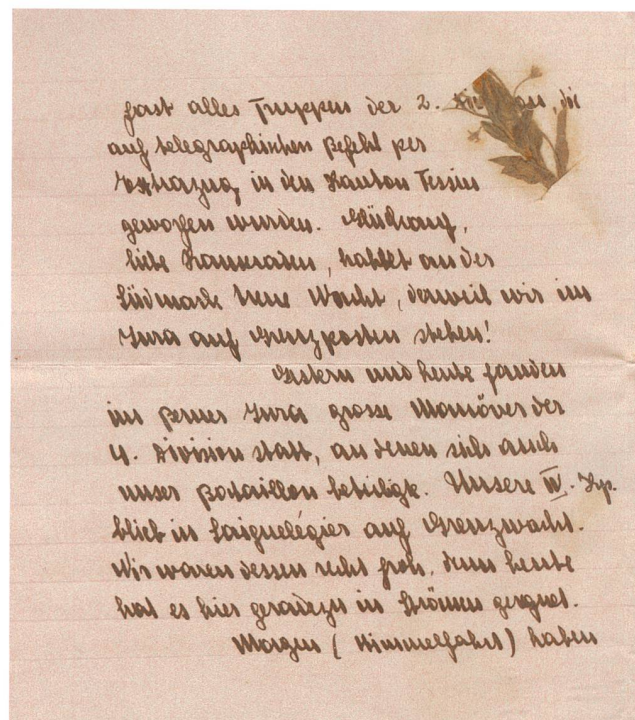 fast alles Truppen der 2. Division, die
auf telegraphischen Befehl per
Extrazug in den Kanton Tessin
geworfen wurden. Glückauf,
liebe Kameraden, haltet an der
Südmark treue Wacht, derweil wir im
Jura auf Grenzposten stehen!
Gestern und heute fanden
im Berner Jura grosse Manöver der
4. Division statt, an denen sich auch
unser Bataillon beteiligt. Unsere IV. Kp.
blieb in Saignelégier auf Grenzwacht.
Wir waren dessen recht froh, denn heute
hat es hier geradezu in Strömen geregnet.
Morgen (Himmelfahrt) haben